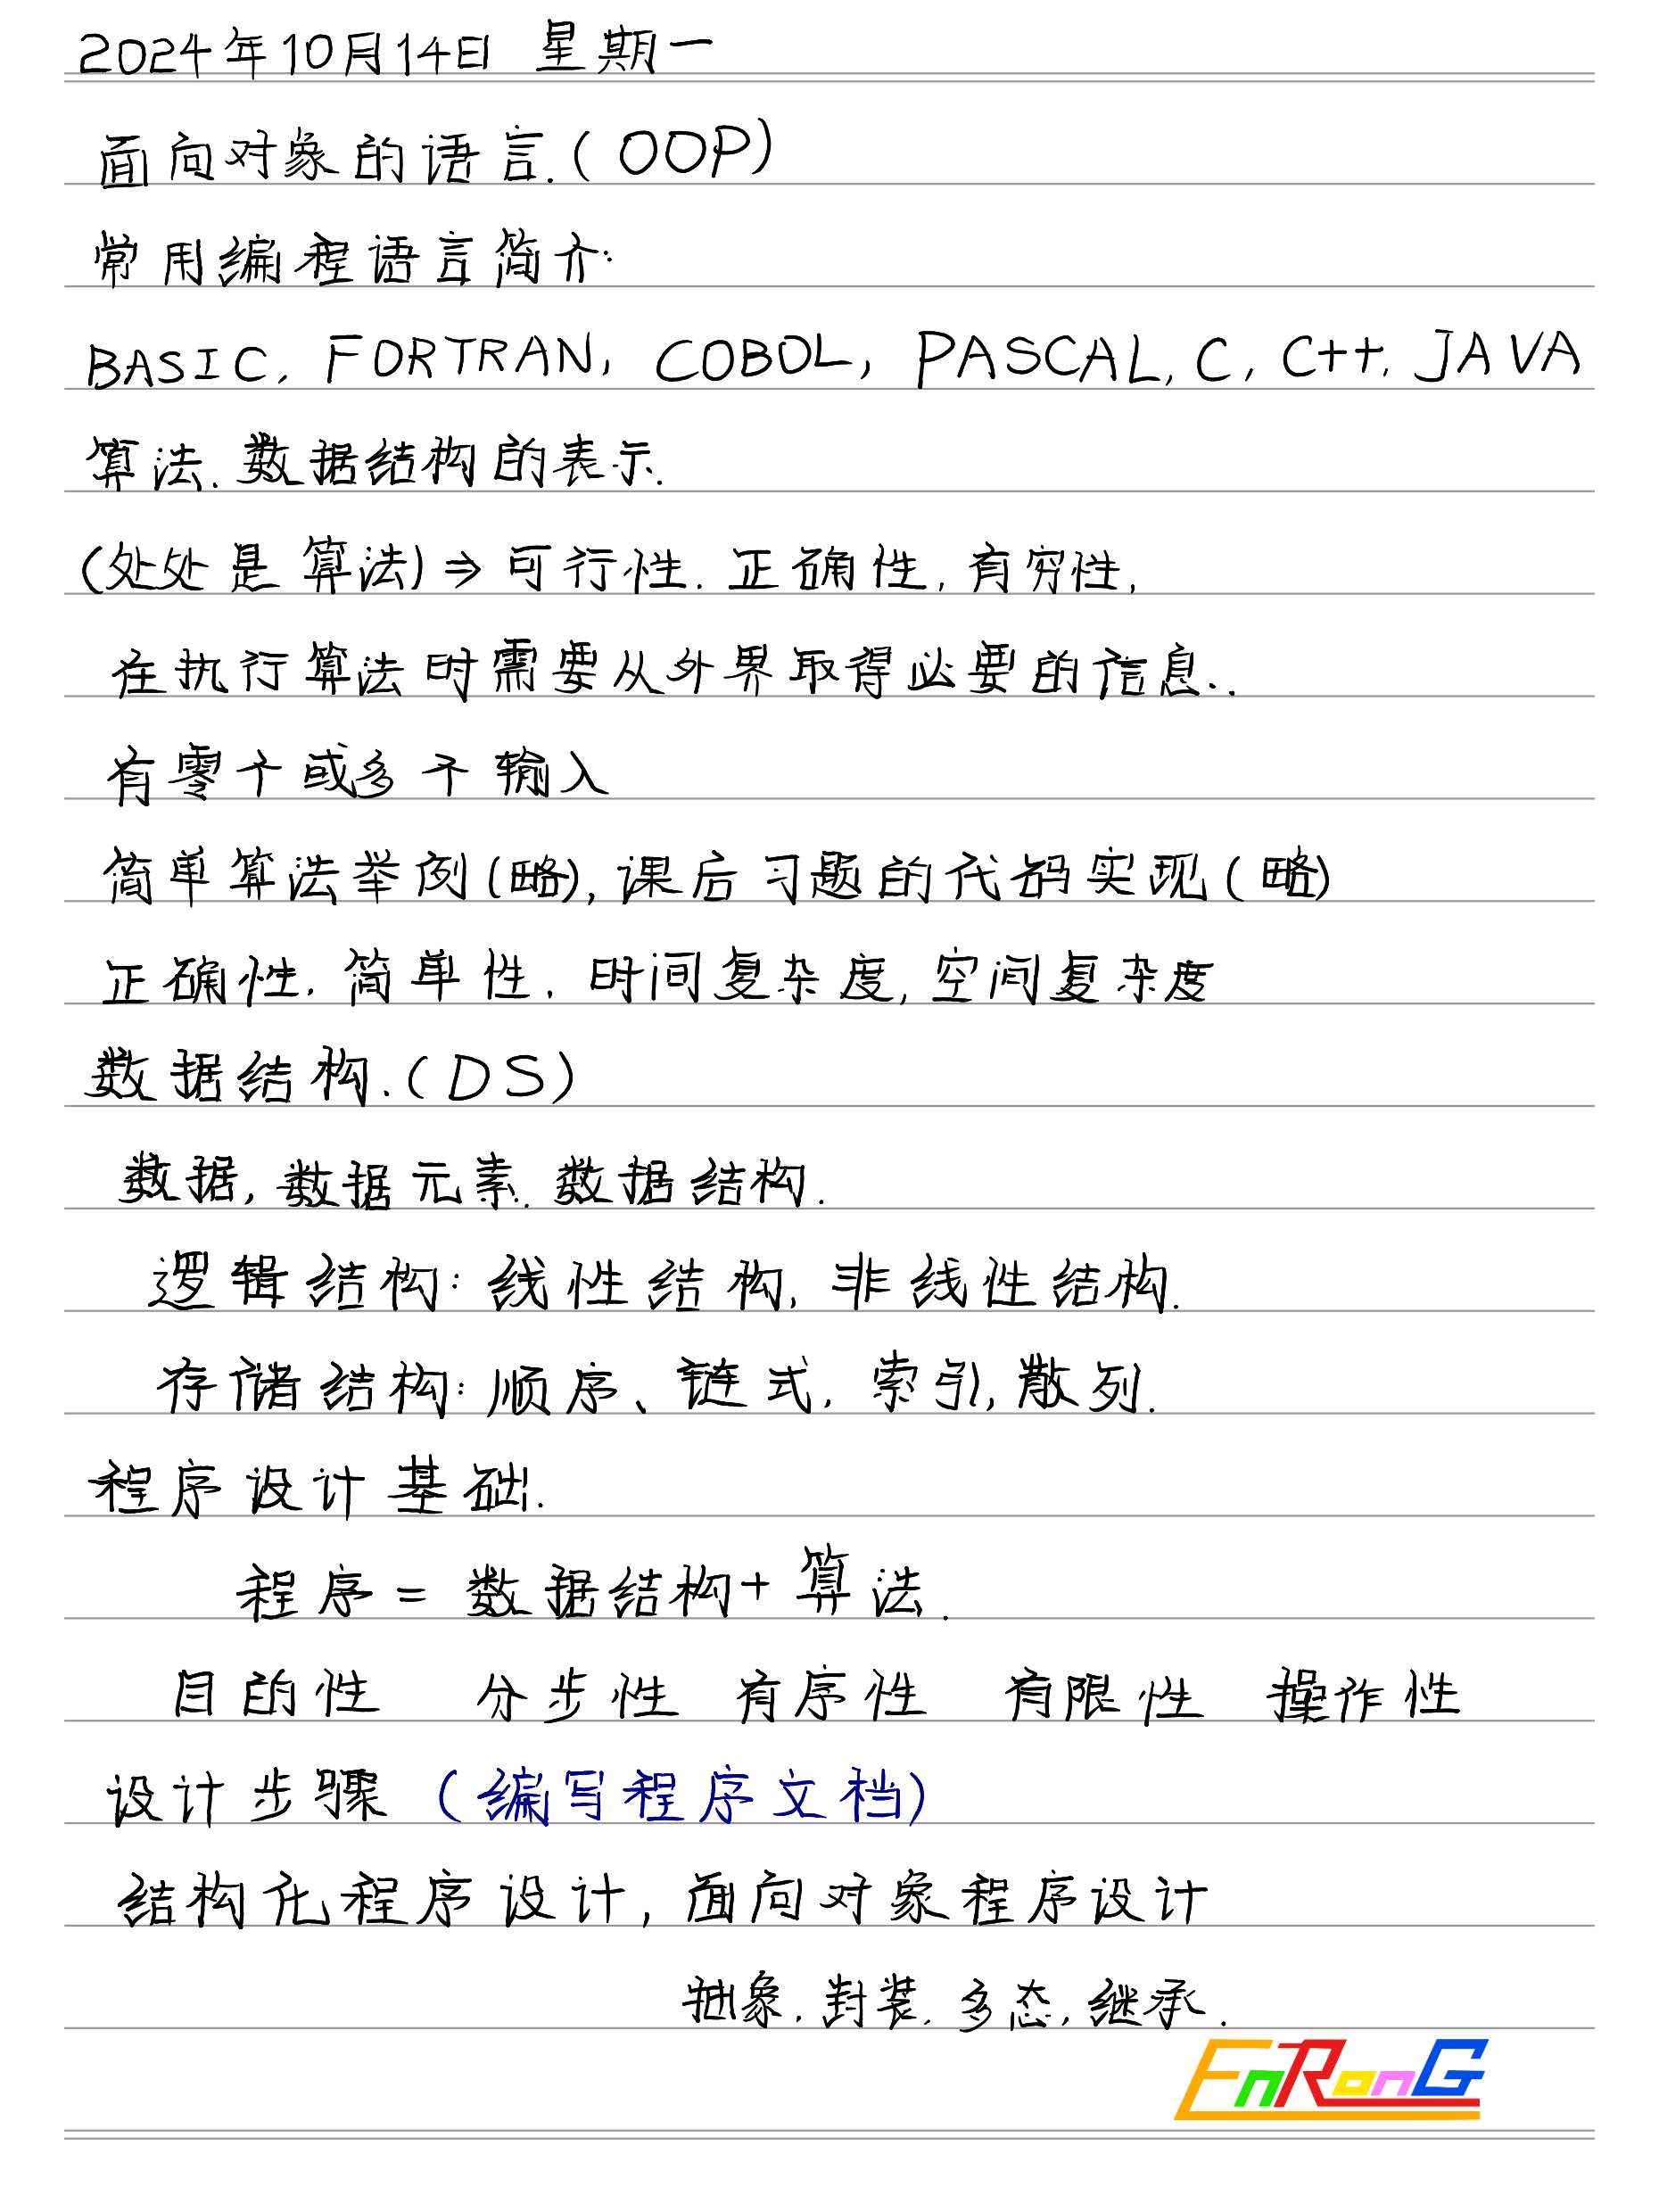 2024年10月14日 星期一
面向对象的语言.(OOP)
常用编程语言简介:
BASIC, FORTRAN, COBOL, PASCAL, C, C++, JAVA
算法.数据结构的表示.
(处处是算法)⇒可行性.正确性,有穷性,
在执行算法时需要从外界取得必要的信息..
有零个或多个输入
简单算法举例(略),课后习题的代码实现(略)
正确性,简单性.时间复杂度,空间复杂度
数据结构.(DS)
数据,数据元素.数据结构.
逻辑结构:线性结构,非线性结构.
存储结构:顺序、链式,索引,散列.
程序设计基础.
程序=数据结构+算法.
目的性 分步性 有序性 有限性 操作性
设计步骤(编写程序文档)
结构化程序设计,面向对象程序设计
抽象.封装.多态,继承.
EnRonG